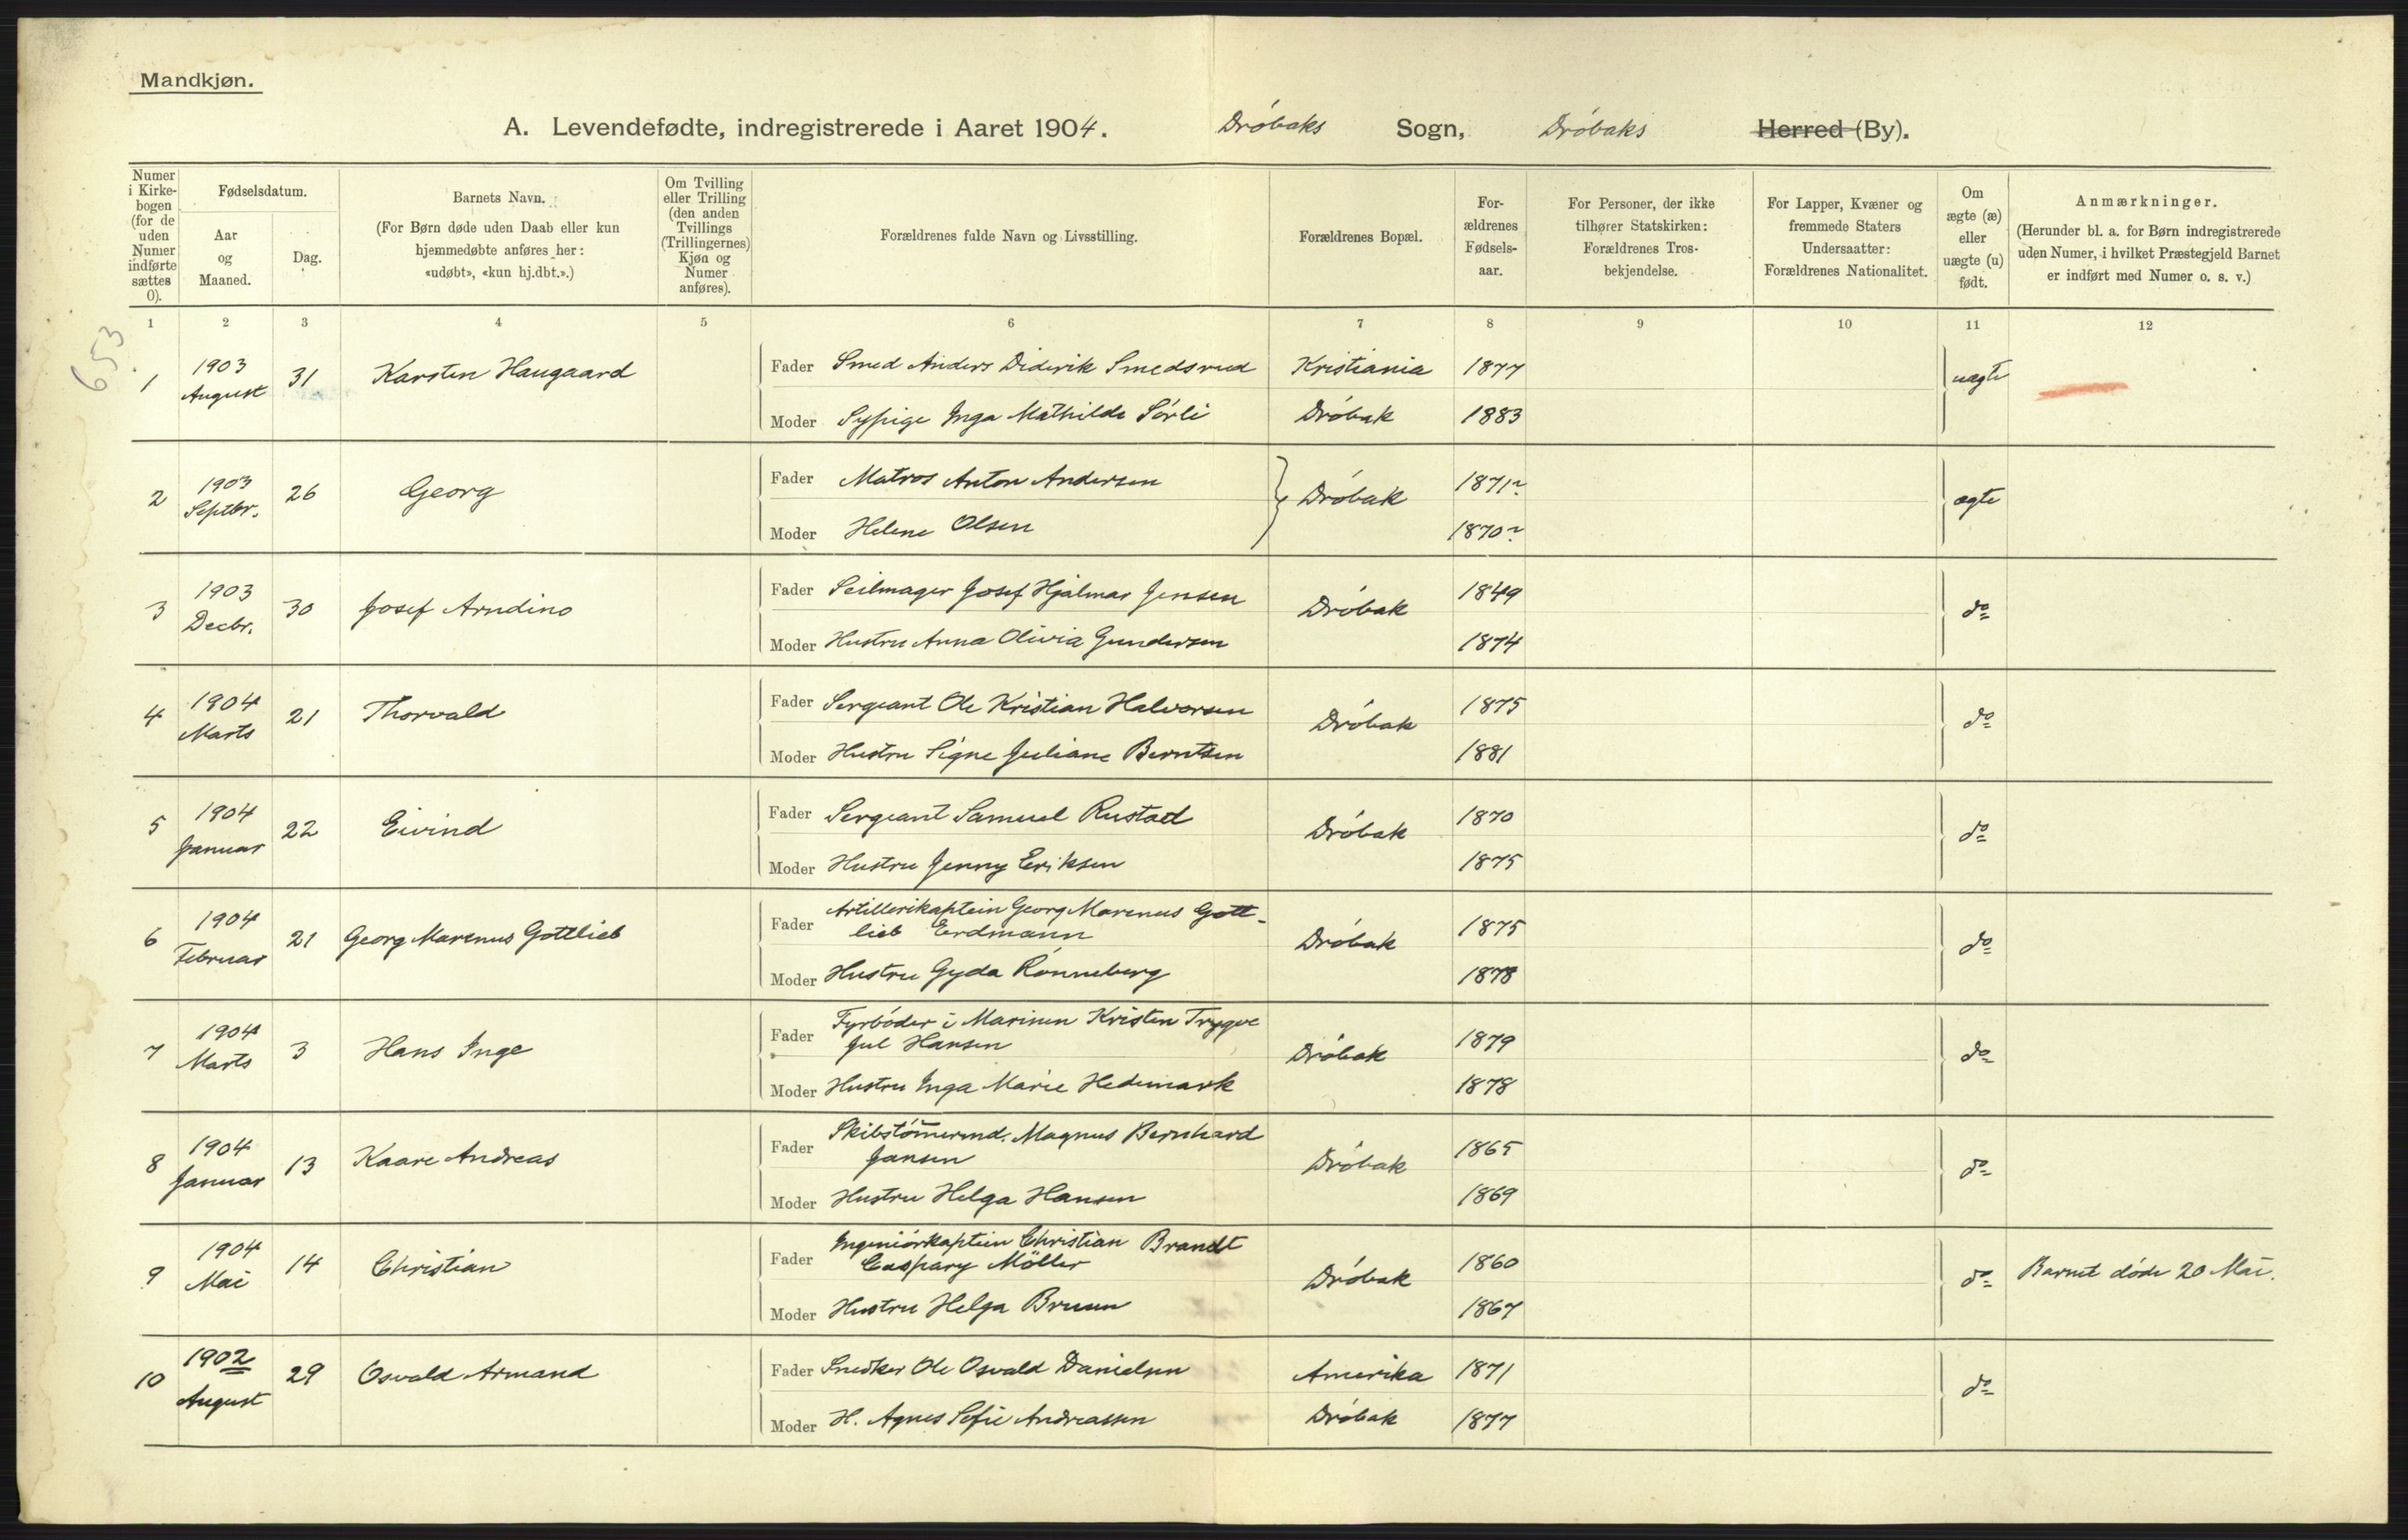 Mandkjøn.
A. Levendefødte, indregistrerede i Aaret 1904. Drøbaks Sogn, Drøbaks Herred (By).
Numer i Kirkebogen (for de uden Numer indførte sættes 0).
Fødselsdatum.
Aar og Maaned.
Dag.
Barnets Navn.
(For Børn døde uden Daab eller kun hjemmedøbte anføres her: «udøbt», «kun hj.dbt.».)
Om Tvilling eller Trilling (den anden Tvillings (Trillingernes) Kjøn og Numer anføres).
Forældrenes fulde Navn og Livsstilling.
Forældrenes Bopæl.
Forældrenes Fødselsaar.
For Personer, der ikke tilhører Statskirken: Forældrenes Trosbekjendelse.
For Lapper, Kvæner og fremmede Staters Undersaatter: Forældrenes Nationalitet.
Om ægte (æ) eller uægte (u) født.
Anmærkninger.
(Herunder bl. a. for Børn indregistrerede uden Numer, i hvilket Præstegjeld Barnet er indført med Numer o. s. v.)
1 2 3 4 5 6 7 8 9 10 11 12
653
1 1903 August 31 Karsten Haugaard
Fader Smed Anders Diderik Smedsrud Kristiania 1877 uægte
Moder Sypige Inga Mathilde Sørli Drøbak 1883
2 1903 Septbr. 26 Georg
Fader Matros Anton Andersen Drøbak 1871? ægte
Moder Helene Olsen 1870?
3 1903 Decbr. 30 Josef Arndino
Fader Seilmager Josef Hjalmar Jensen Drøbak 1849 do
Moder Hustru Anna Olivia Gundersen 1874
4 1904 Marts 21 Thorvald
Fader Sergeant Ole Kristian Halvorsen Drøbak 1875 do
Moder Hustru Signe Juliane Berntsen 1881
5 1904 Januar 22 Eivind
Fader Sergeant Samuel Rustad Drøbak 1870 do
Moder Hustru Jenny Eriksen 1875
6 1904 Februar 21 Georg Marenus Gottlieb
Fader Artillerikaptein Georg Marenus Gott-
lieb Erdmann Drøbak 1875 do
Moder Hustru Gyda Rønneberg 1878
7 1904 Marts 3 Hans Inge
Fader Fyrbøder i Marinen Kristen Trygve
Jul Hansen Drøbak 1879 do
Moder Hustru Inga Marie Hedemark 1878
8 1904 Januar 13 Kaare Andreas
Fader Skibstømermd. Magnus Bernhard
Jansen Drøbak 1865 do
Moder Hustru Helga Hansen 1869
9 1904 Mai 14 Christian
Fader Ingeniørkaptein Christian Brandt
Caspary Möller Drøbak 1860 do Barnet døde 20 Mai.
Moder Hustru Helga Bruun 1867
10 1902 August 29 Osvald Armand
Fader Snedker Ole Osvald Danielsen Amerika 1871 do
Moder H. Agnes Sofie Andreassen Drøbak 1877